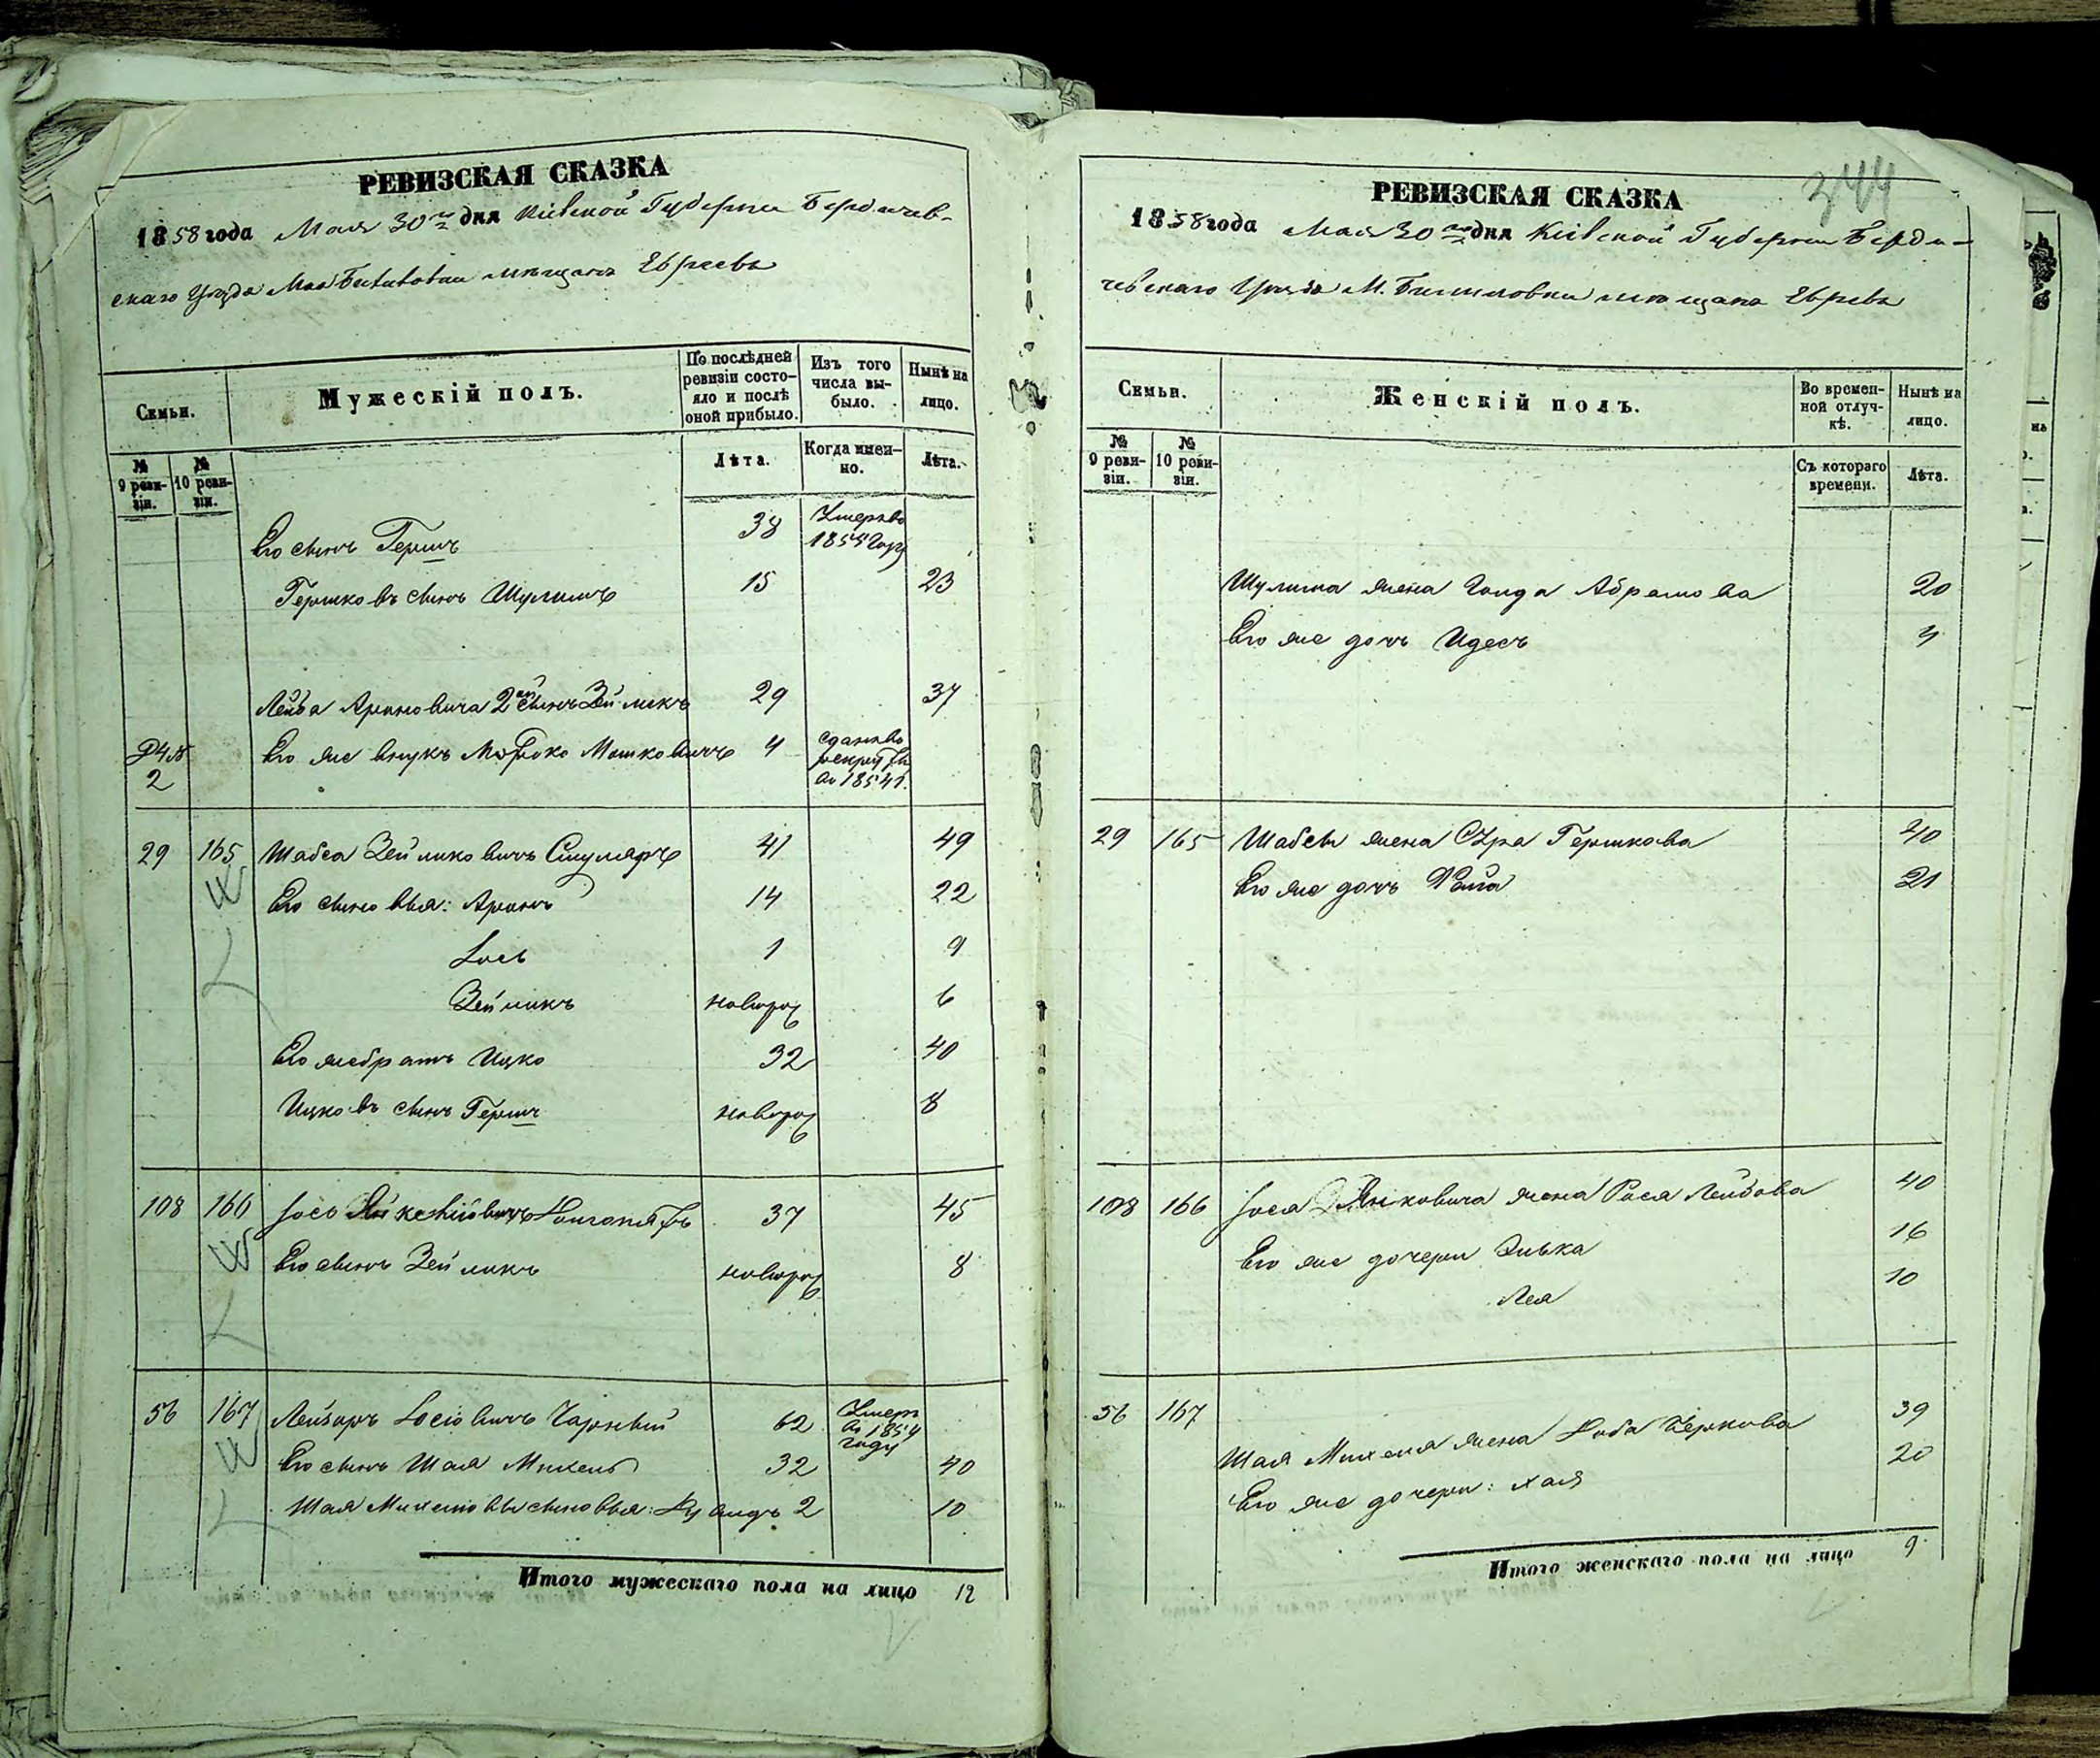 РЕВИЗСКАЯ СКАЗКА
1858 года Мая 30 дня Кіевской Губерніи Бердичев-
скаго Уѣзда мѣщанъ Евреевъ
Семьи.
Мужескій полъ.
По послѣдней ревизіи состо-
яло и послѣ оной прибыло.
Изъ того числа вы-
было.
Нынѣ на лицо.
№ 9 реви-
зіи.
№ 10 реви-
зіи.
Лѣта.
Когда имен-
но.
Лѣта.
Его сынъ Герш 38 Умеръ въ
1855 году
Гершковъ сынъ Шулимъ 15 23
Лейба Ароновича 2й сынъ Зейликъ 29 37
Его же внукъ Мошковичъ 4 сданъ въ
рекруты
въ 1854 г.
2
29 165 Шабса Зейликовичъ 41 49
Его сыновья: Аронъ 14 22
Іось 1 9
Зейликъ новорож 6
Его же братъ Ицко 32 40
Ицковъ сынъ Герш новорож 8
108 166 Іось 37 45
Его сынъ Зейликъ новорож 8
56 167 Лейзоръ Іосіовичъ Чарный 62 Умеръ
въ 1854
году
Его сынъ Шая Михель 32 40
Шая Михеліовы сыновья: 2 10
Итого мужескаго пола на лицо 12
344
РЕВИЗСКАЯ СКАЗКА
1858 года Мая 30 дня Кіевской Губерніи Берди-
чевскаго Уѣзда М. мѣщанъ Евреевъ
Семьи.
Женскій полъ.
Во времен-
ной отлуч-
кѣ.
Нынѣ на лицо.
№ 9 реви-
зіи.
№ 10 реви-
зіи.
Съ котораго времени.
Лѣта.
Шулима жена Абрамова 20
Его же дочь Идесъ 4
29 165 Шабсы жена Сура Гершкова 40
Его же дочь Фейга 21
108 166 Іося Янковича жена Рася Лейбова 40
Его же дочери Зивка 16
Лея 10
56 167
Шая Михеля жена Берkова 39
Его же дочери: Хая 20
Итого женскаго пола на лицо 9